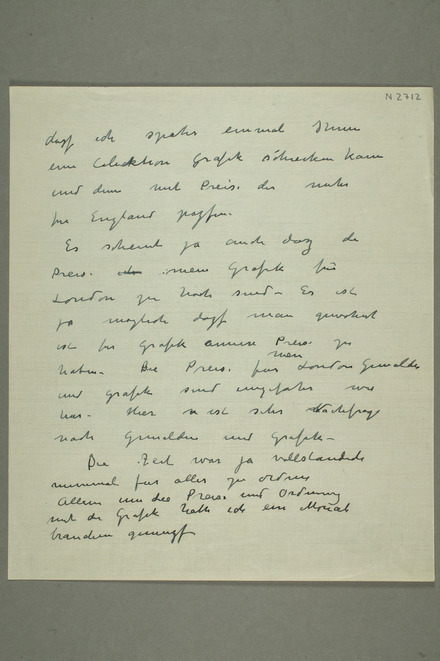 N 2712
dass ich später einmal Ihnen
eine Collektion Grafik schicken kann
und dann mit Preis. die mehr
für England passen.
Es scheint ja auch dass die
Preis. meine Grafik für
London zu hoch sind – Es ist
ja möglich dass man gewohnt
ist für Grafik Preis. zu
haben – Die Preis. für mein London Gemälde
und Grafik sind ungefähr wie
hier – Hier ist sehr Nachfrage
nach Gemälden und Grafik –
Die Zeit war ja vollständig
minimal für alles zu ordnen
Allein um die Preise und Ordnung
mit der Grafik hätte ich ein Monat
brauchen